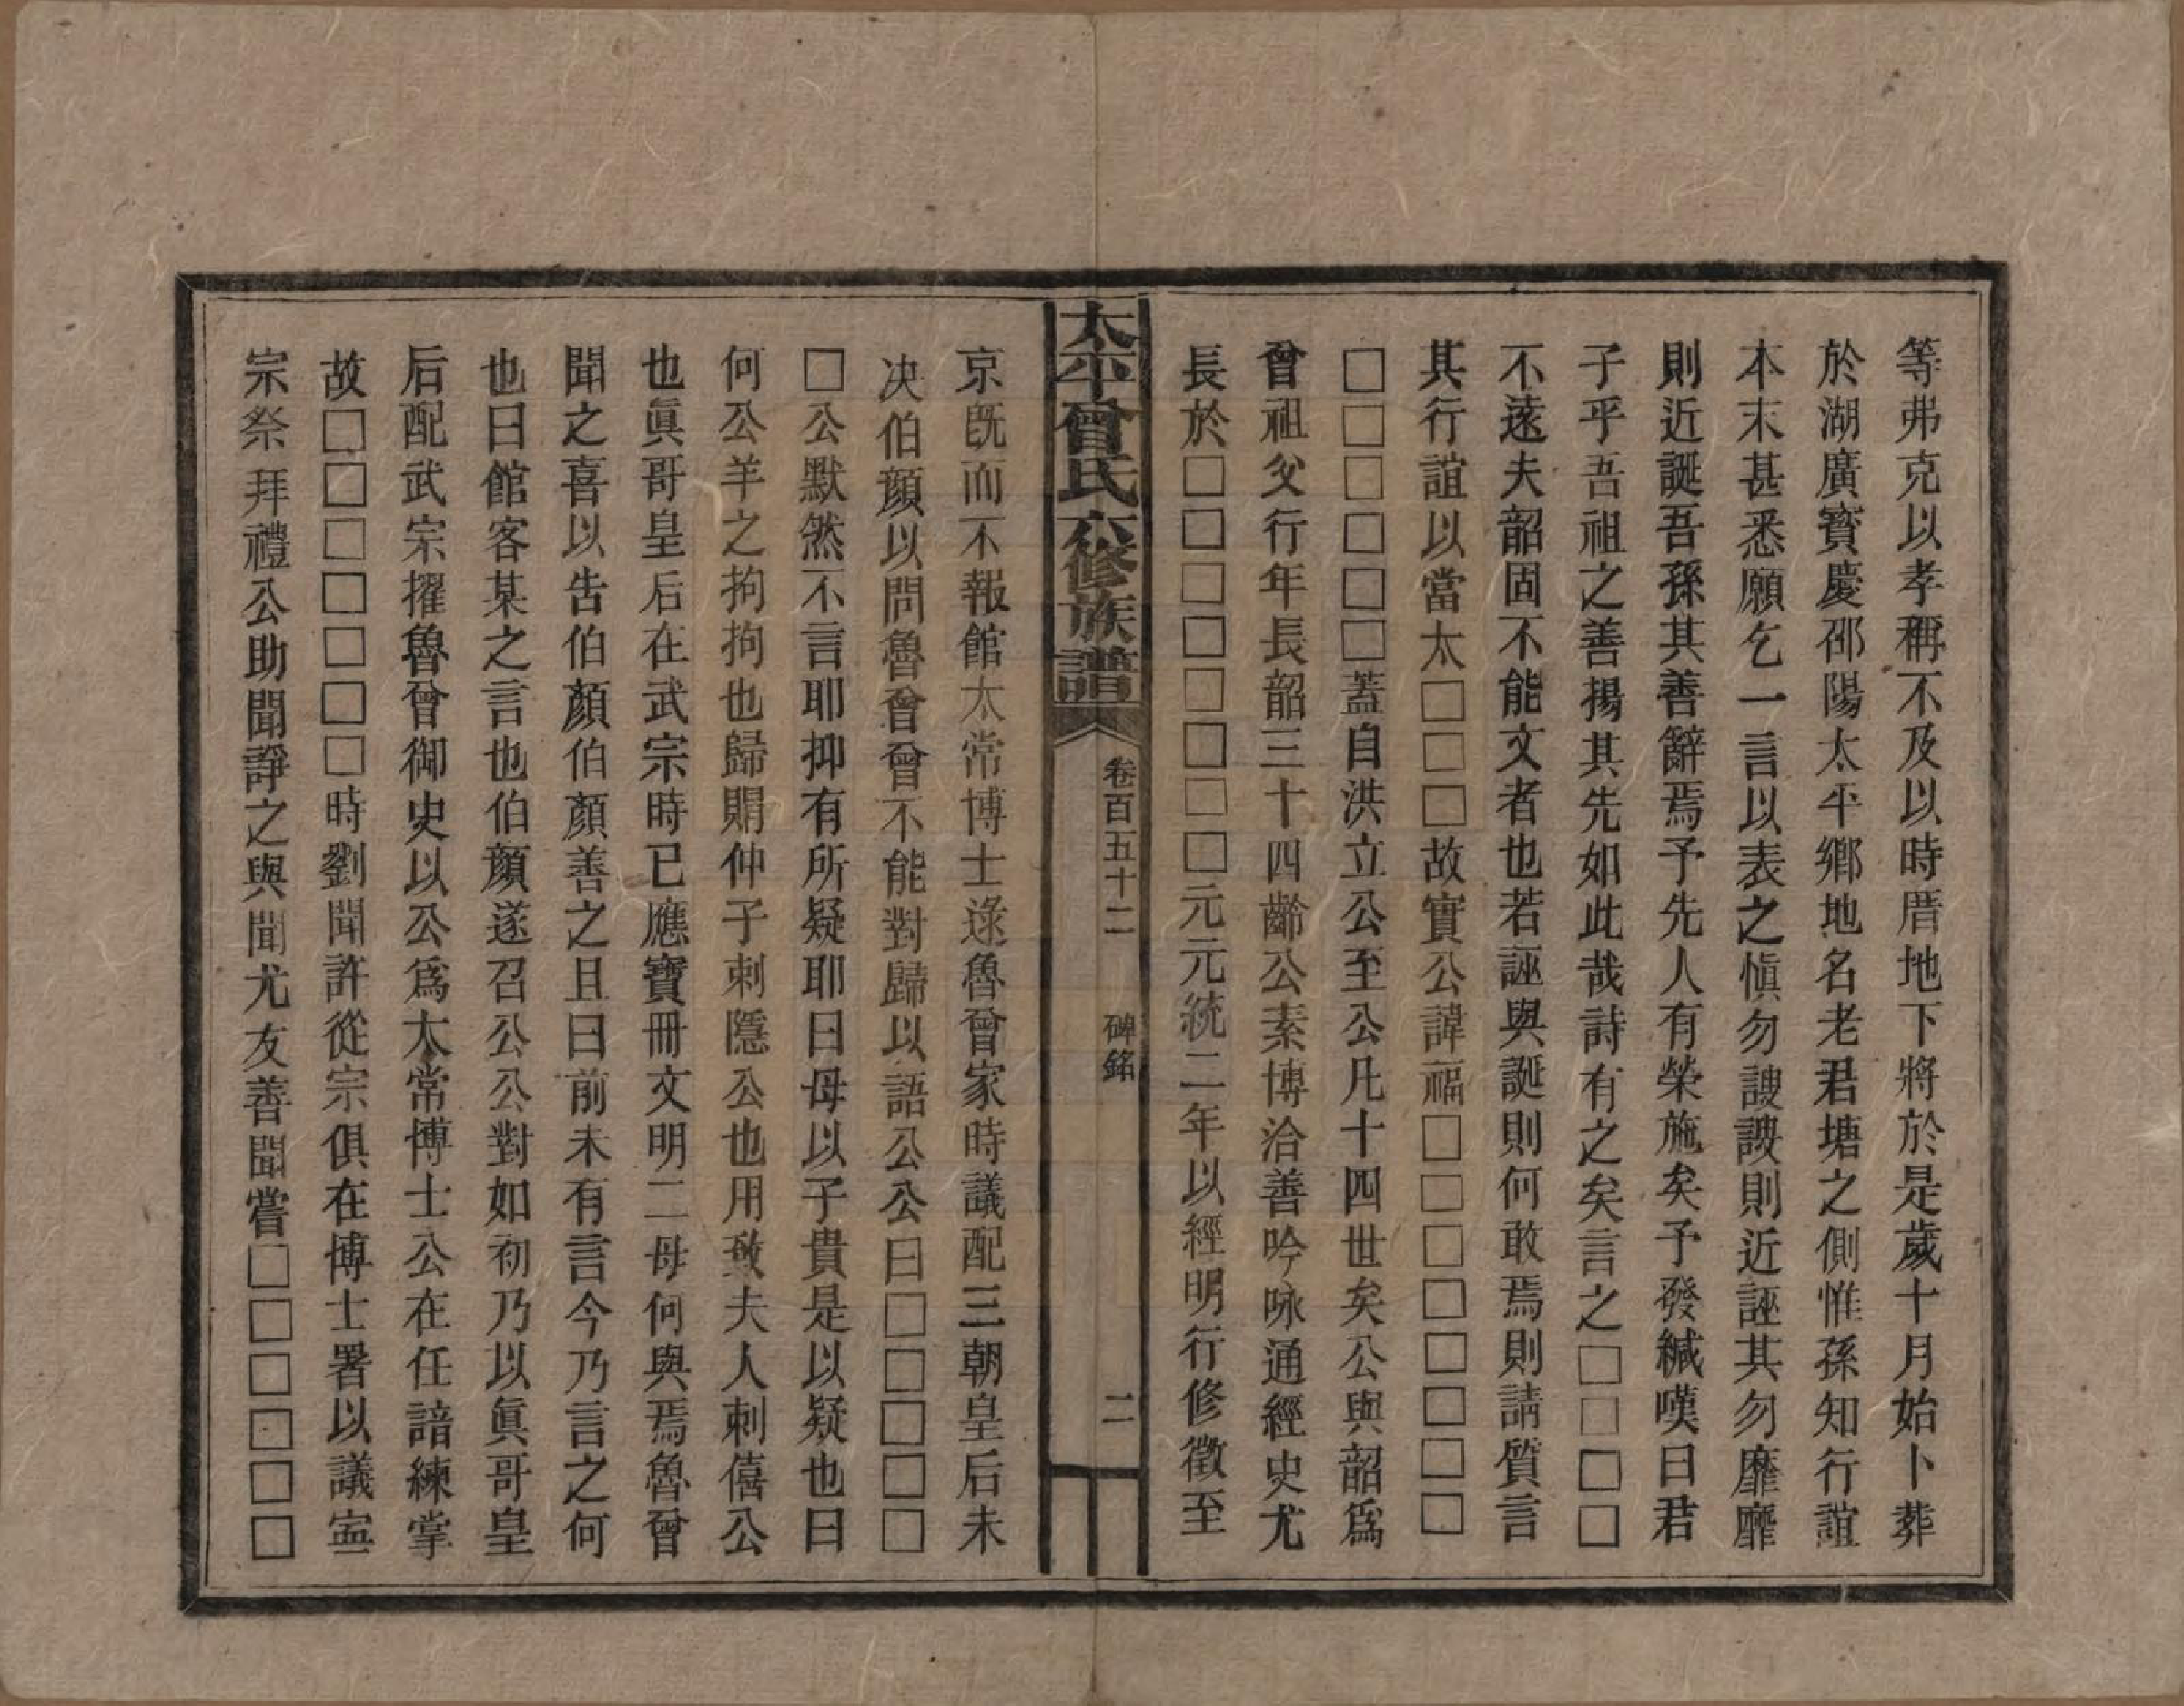 等弗克以孝稱不及以時厝地下將於是歲十月始卜葬
於湖廣寶慶邵陽太平鄉地名老君塘之側惟孫知行誼
本末甚悉願乞一言以表之愼勿謏謏則近誣其勿靡靡
則近誕吾孫其善辭焉予先人有榮施矣予發緘嘆曰君
子乎吾祖之善揚其先如此哉詩有之矣言之□□□□
不遠夫韶固不能文者也若誣與誕則何敢焉則請質言
其行誼以當太□□□故實公諱福□□□□□□□□
□□□□□□蓋自洪立公至公凡十四世矣公與韶爲
曾祖父行年長韶三十四齡公素博洽善吟咏通經史尤
長於□□□□□□□□元元統二年以經明行修徵至
太平曾氏六修族譜
卷百五十二
碑銘
二
京既而不報館太常博士逯魯曾家時議配三朝皇后未
决伯顏以問魯曾曾不能對歸以語公公曰□□□□□
□公默然不言耶抑有所疑耶曰母以子貴是以疑也曰
何公羊之拘拘也歸賵仲子刺隱公也用致夫人刺僖公
也眞哥皇后在武宗時已應寶冊文明二母何與焉魯曾
聞之喜以告伯顏伯顏善之且曰前未有言今乃言之何
也曰館客某之言也伯顏遂召公公對如初乃以眞哥皇
后配武宗擢魯曾御史以公爲太常博士公在任諳練掌
故□□□□□□□時劉聞許從宗俱在博士署以議寍
宗祭拜禮公助聞諍之與聞尤友善聞嘗□□□□□□